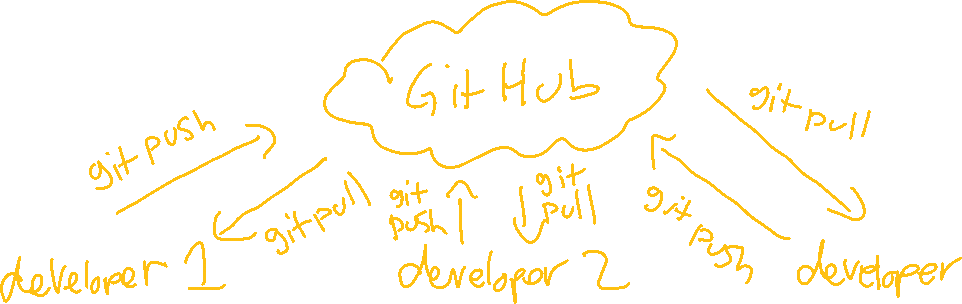 GitHub
git push
git pull
git
push
git
pull
git push
git pull
developer 1
developer 2
developer